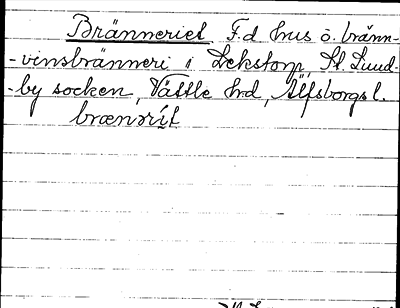 Bränneriet F.d hus o. bränn-
-vinsbränneri i Lekstorp, St. Lund-
-by socken, Vättle hd, Älfsborgs l.
brænərít